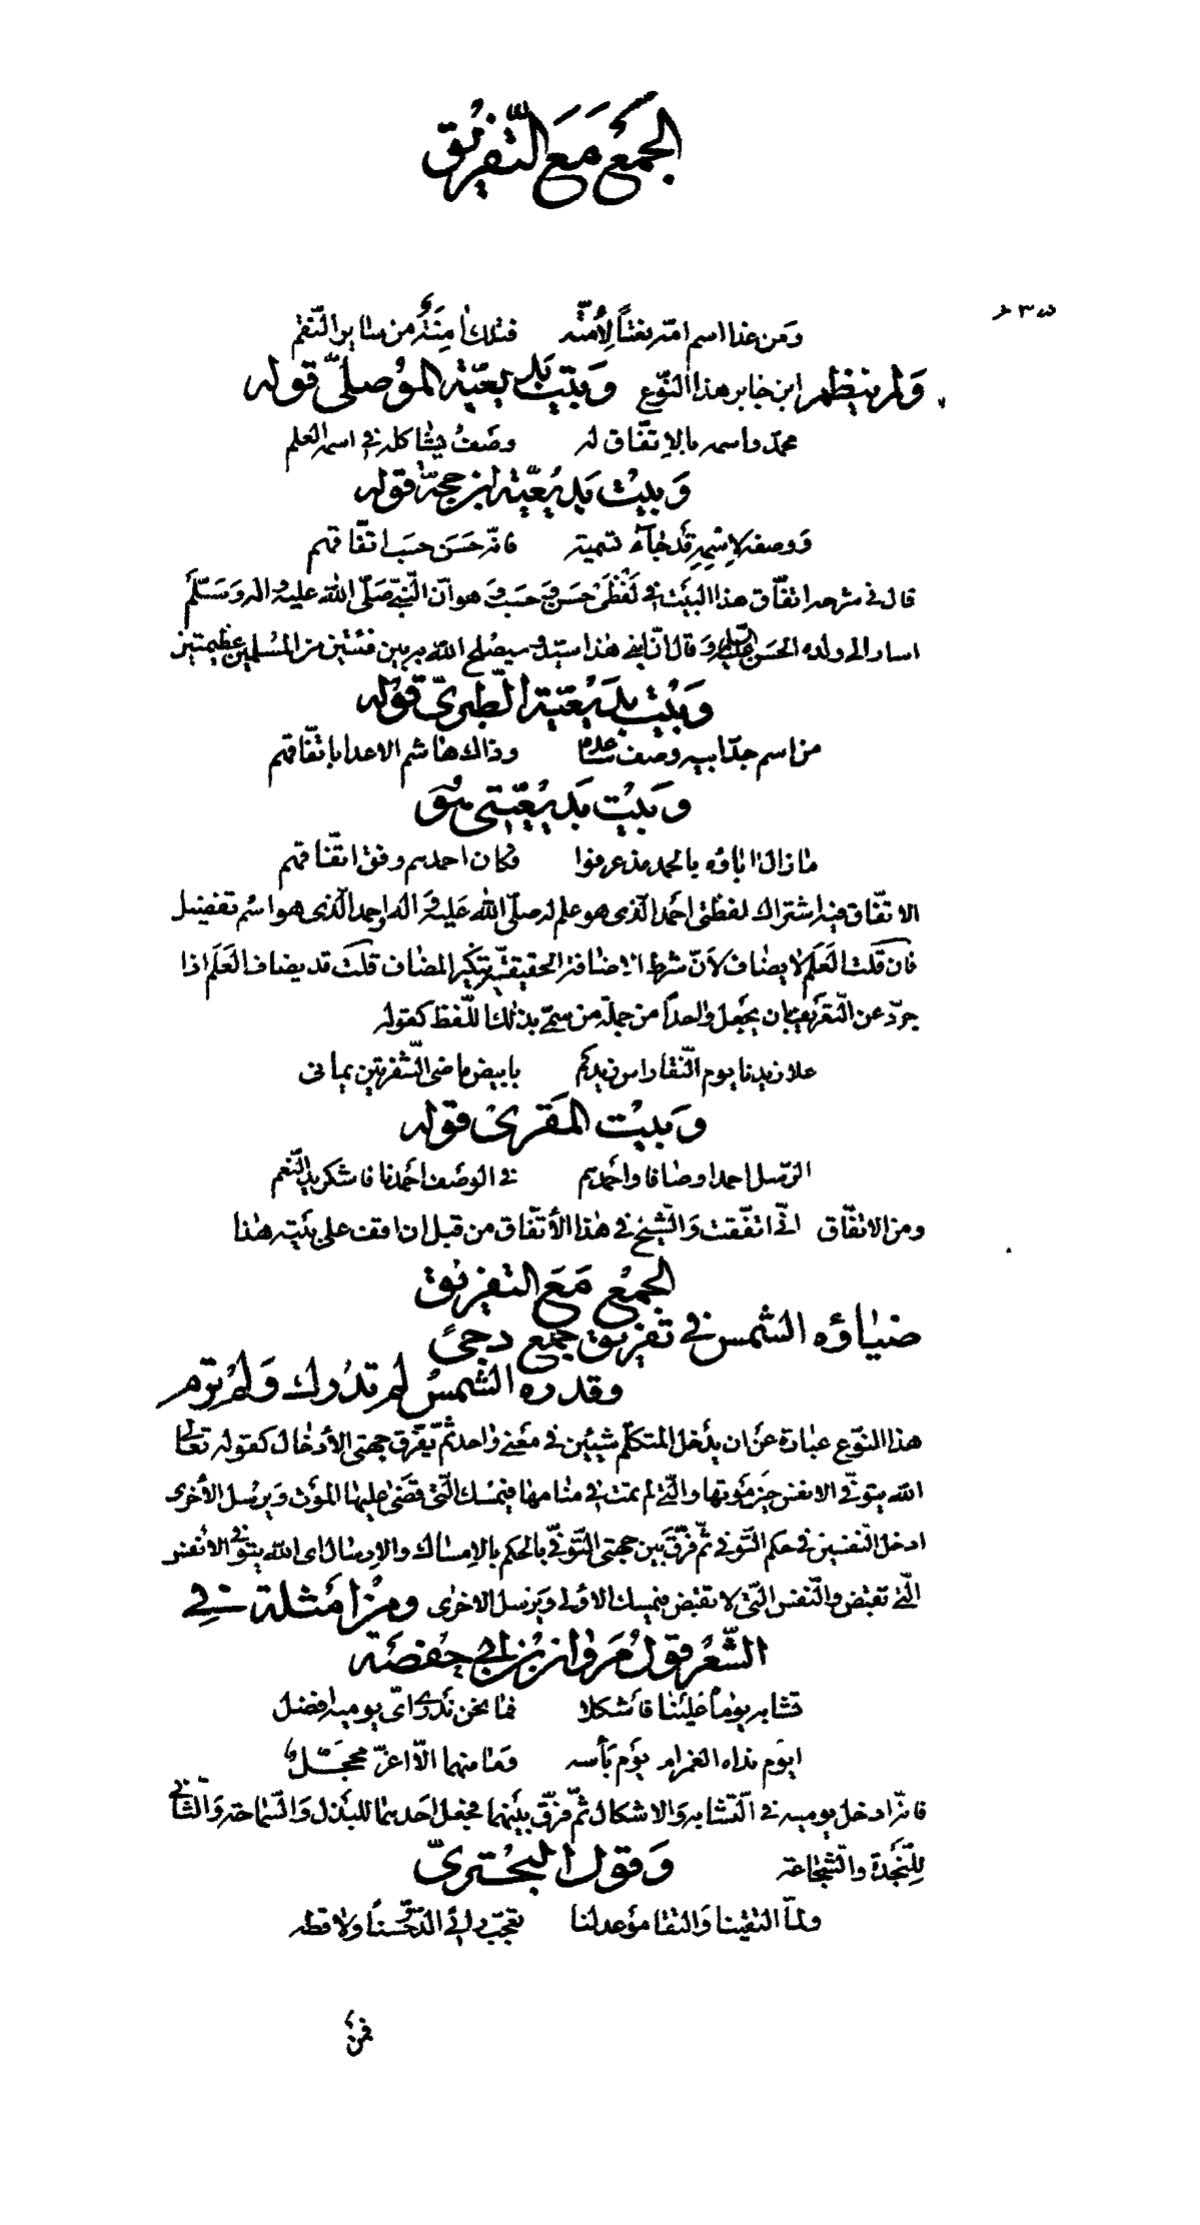 الجَمْعُ مَعَ التَّفْرِيْق
وَمن غدا اسم امّه نعتًا لِأُمّته فتلك اٰمِنَةٌ من سائر النّقم
وَلم ينظم ابن جابر هذا النّوع وَبيت بديعيّة الموصليّ قوله
محمّد واسمه بالاتّفاق له وصفٌ يشاكله في اسمه العلم
وَبيت بديعيّة ابن حجّة قوله
وَوصفه لابنه قد جاء تسميته فانّه حَسَن حسَب اتّفاقهم
قال في شرحه اتّفاق هذا البيت في لفظَيْ حسن وحسب وَهو انّ النّبيّ صَلّى الله عليه واله وَسَلّم
اشار الى ولده الحسن عليه السلام وَقال انّ ابني هذا سيّد وسيصلح الله به بين فئتين من المسلمين عظيمتين
وَبيت بديعيّة الطّبريّ قوله
من اسم جدّ ابيه وصف وذاك هاشم الاعدا باتّفاقهم
وَبيت بديعيّتي هُوَ
ما زال اٰباؤه بالحمد مذ عرفوا فكان احمدهم وفق اتّفاقهم
الاتّفاق فيه اشتراك لفظتي احمد الّذي هو علم له صلّى الله عَليه وَاله واحمد الّذي هو اسم تفضيل
فان قلت العَلَم لا يضاف لأنّ شرط الاضافة الحقيقيّة تنكير المضاف قلت قد يضاف العَلَم اذا
جرّد عن التّعريف بان يجعل واحدًا من جملة من سمّي بذلك اللّفظ كقوله
علا زيدنا يوم النّقا راس زيدكم بابيض ماضي الشّفرتين يماني
وَبيت المَقري قوله
الرّسل احمد اوصافا واحمدهم في الوصف احمدنا فاشكر يد النّعم
ومن الاتّفاق انّي اتّفقت وَالشّيخ في هذا الاتّفاق من قبل ان اقف على بيته هذا
الجمعُ مَعَ التفريق
ضياؤه الشّمس في تفريق جمع دجىً
وقدره الشّمسُ لم تدرك وَلم ترم
هذا النّوع عبارة عن ان يدخل المتكلّم شيئين في معنى واحد ثمّ يفرّق جهتي الأدخال كقوله تعالى
الله يتوفّى الانفس حين موتها والّتي لم تمت في منامها فيمسك الّتي قضى عليها الموت وَيرسل الأخرى
ادخل النّفسين في حكم التّوفّي ثمّ فرّق بين جهتي التّوفّي بالحكم بالإمساك والإرسال اى الله يتوفّى الأنفس
الّتي تقبض والنّفس الّتي لا تقبض فيمسك الاولى ويرسل الاخرى ومن امثلته في
الشّعر قول مروان بن ابي حفصة
تشابه يوماه عَلينا فأشكلا فما نحن ندري ايّ يوميه افضل
ايوم نداه الغمر ام يوم بأسه وما منهما الّا اغرّ محجّلٌ
فانّه ادخل يوميه في التّشابه وَالاشكال ثمّ فرّق بينهما فجعل احدهما للبذل وَالسّماحة وَالثّاني
للنّجدة والشّجاعة وَقول البحتريّ
ولمّا التقينا وَالنّقا موعد لنا تعجّب رائي الدّرّ حُسناً ولاقطه
فمن